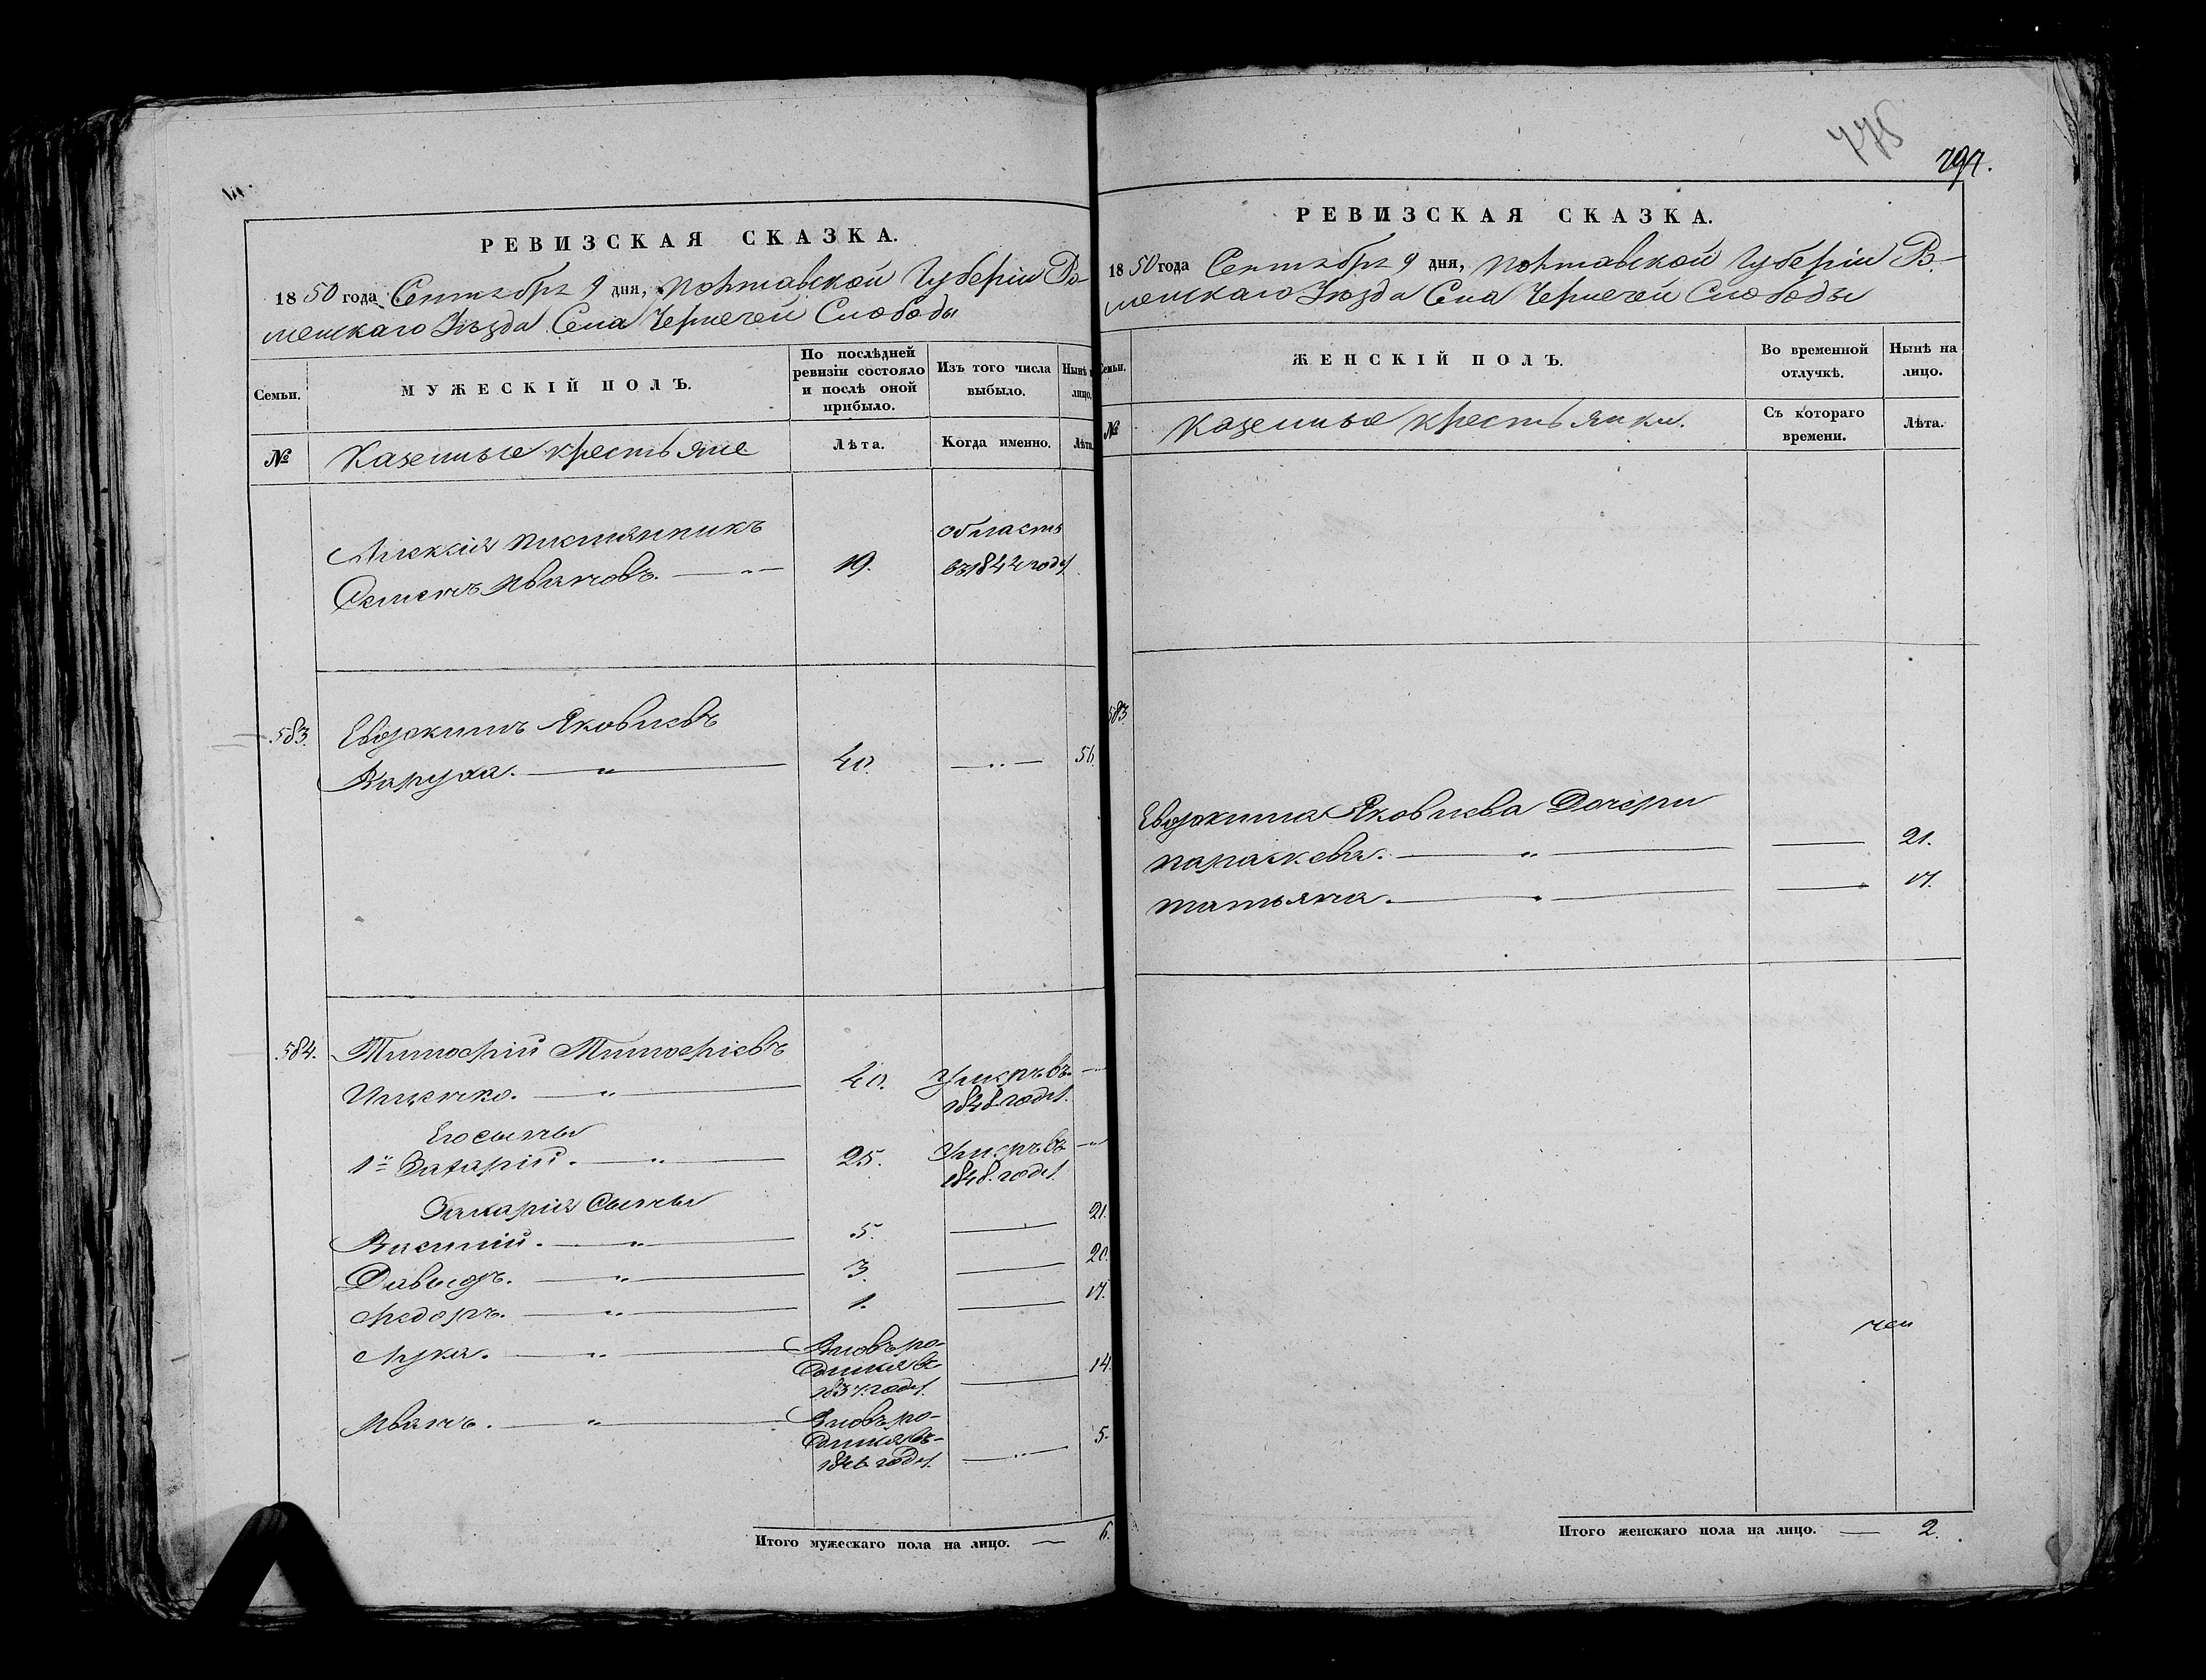 РЕВИЗСКАЯ СКАЗКА.
1850 года Сентября 9 дня, Полтавской Губерніи Ро-
менскаго Уѣзда Села Чернечей Слободы
Семьи.
МУЖЕСКІЙ ПОЛЪ.
По послѣдней ревизіи состояло и послѣ оной прибыло.
Изъ того числа выбыло.
Нынѣ
лицо.
№
Казенные крестьяне
Лѣта.
Когда именно.
Лѣта
Алексѣя племянникъ
Семенъ Ивановъ. — 19.
область
въ 1842 году
583. Евдокимъ Яковлевъ
40. — 56.
584. Тимофѣй Тимофѣевъ
Ищенко. — 40. Умеръ въ —
1848 году.
Его сыны
1й Захарій. — 25. Умеръ въ —
1848. году.
Захарія Сыны
Василій. — 5. — 21.
Давыдъ. — 3. — 20.
Федоръ. — 1. — 17.
Лука. — Вновь ро-
дился въ — 14.
1837. году.
Иванъ. — Вновь ро-
дился въ — 5.
1846 году.
Итого мужескаго пола на лицо. — 6.
778
797.
РЕВИЗСКАЯ СКАЗКА.
1850 года Сентября 9 дня, Полтавской Губерніи Ро-
менскаго Уѣзда Села Чернечей Слободы
Семьи.
ЖЕНСКІЙ ПОЛЪ.
Во временной отлучкѣ.
Нынѣ на лицо.
№
Казенные крестьянки.
Съ котораго времени.
Лѣта.
583
Евдокима Яковлева Дочери
Параскева. — 21.
Татьяна. — 17.
Итого женскаго пола на лицо. — 2.